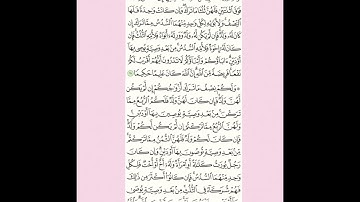 فَوْقَ ٱثْنَتَيْنِ فَلَهُنَّ ثُلُثَا مَا تَرَكَ وَإِن كَانَتْ وَٰحِدَةً فَلَهَا
ٱلنِّصْفُ وَلِأَبَوَيْهِ لِكُلِّ وَٰحِدٍ مِّنْهُمَا ٱلسُّدُسُ مِمَّا تَرَكَ إِن
كَانَ لَهُۥ وَلَدٌ فَإِن لَّمْ يَكُن لَّهُۥ وَلَدٌ وَوَرِثَهُۥٓ أَبَوَاهُ فَلِأُمِّهِ ٱلثُّلُثُ فَإِن
كَانَ لَهُۥٓ إِخْوَةٌ فَلِأُمِّهِ ٱلسُّدُسُ مِنۢ بَعْدِ وَصِيَّةٍ يُوصِى بِهَآ أَوْ
دَيْنٍ ءَابَآؤُكُمْ وَأَبْنَآؤُكُمْ لَا تَدْرُونَ أَيُّهُمْ أَقْرَبُ لَكُمْ
نَفْعًا فَرِيضَةً مِّنَ ٱللَّهِ إِنَّ ٱللَّهَ كَانَ عَلِيمًا حَكِيمًا ١١
۞ وَلَكُمْ نِصْفُ مَا تَرَكَ أَزْوَٰجُكُمْ إِن لَّمْ يَكُن
لَّهُنَّ وَلَدٌ فَإِن كَانَ لَهُنَّ وَلَدٌ فَلَكُمُ ٱلرُّبُعُ مِمَّا تَرَكْنَ
مِنۢ بَعْدِ وَصِيَّةٍ يُوصِينَ بِهَآ أَوْ دَيْنٍ
وَلَهُنَّ ٱلرُّبُعُ مِمَّا تَرَكْتُمْ إِن لَّمْ يَكُن لَّكُمْ وَلَدٌ
فَإِن كَانَ لَكُمْ وَلَدٌ فَلَهُنَّ ٱلثُّمُنُ مِمَّا تَرَكْتُم
مِّنۢ بَعْدِ وَصِيَّةٍ تُوصُونَ بِهَآ أَوْ دَيْنٍ وَإِن كَانَ
رَجُلٌ يُورَثُ كَلَٰلَةً أَوِ ٱمْرَأَةٌ وَلَهُۥٓ أَخٌ أَوْ أُخْتٌ فَلِكُلِّ
وَٰحِدٍ مِّنْهُمَا ٱلسُّدُسُ فَإِن كَانُوٓا۟ أَكْثَرَ مِن ذَٰلِكَ
فَهُمْ شُرَكَآءُ فِى ٱلثُّلُثِ مِنۢ بَعْدِ وَصِيَّةٍ يُوصَىٰ